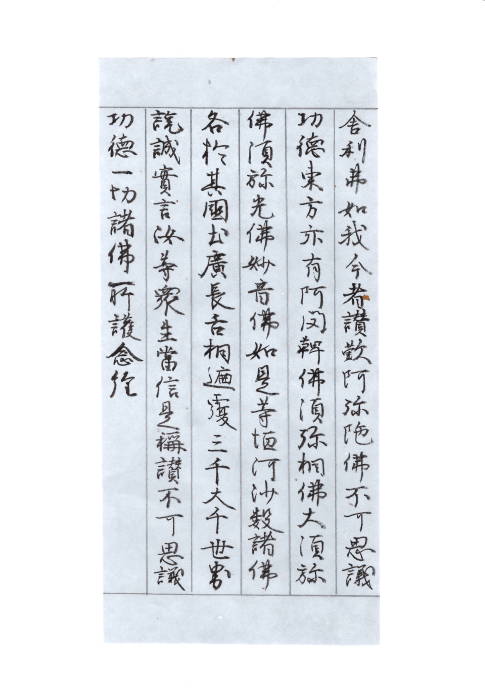 舍利弗如我今者讃歎阿弥陁佛不可思議
功德東方亦有阿閦鞞佛湏弥相佛大湏弥
佛湏弥光佛妙音佛如是等恒河沙数諸佛
各於其國出廣長舌相遍覆三千大千世界
説誠實言汝等衆生當信是稱讃不可思議
功德一切諸佛所護念經